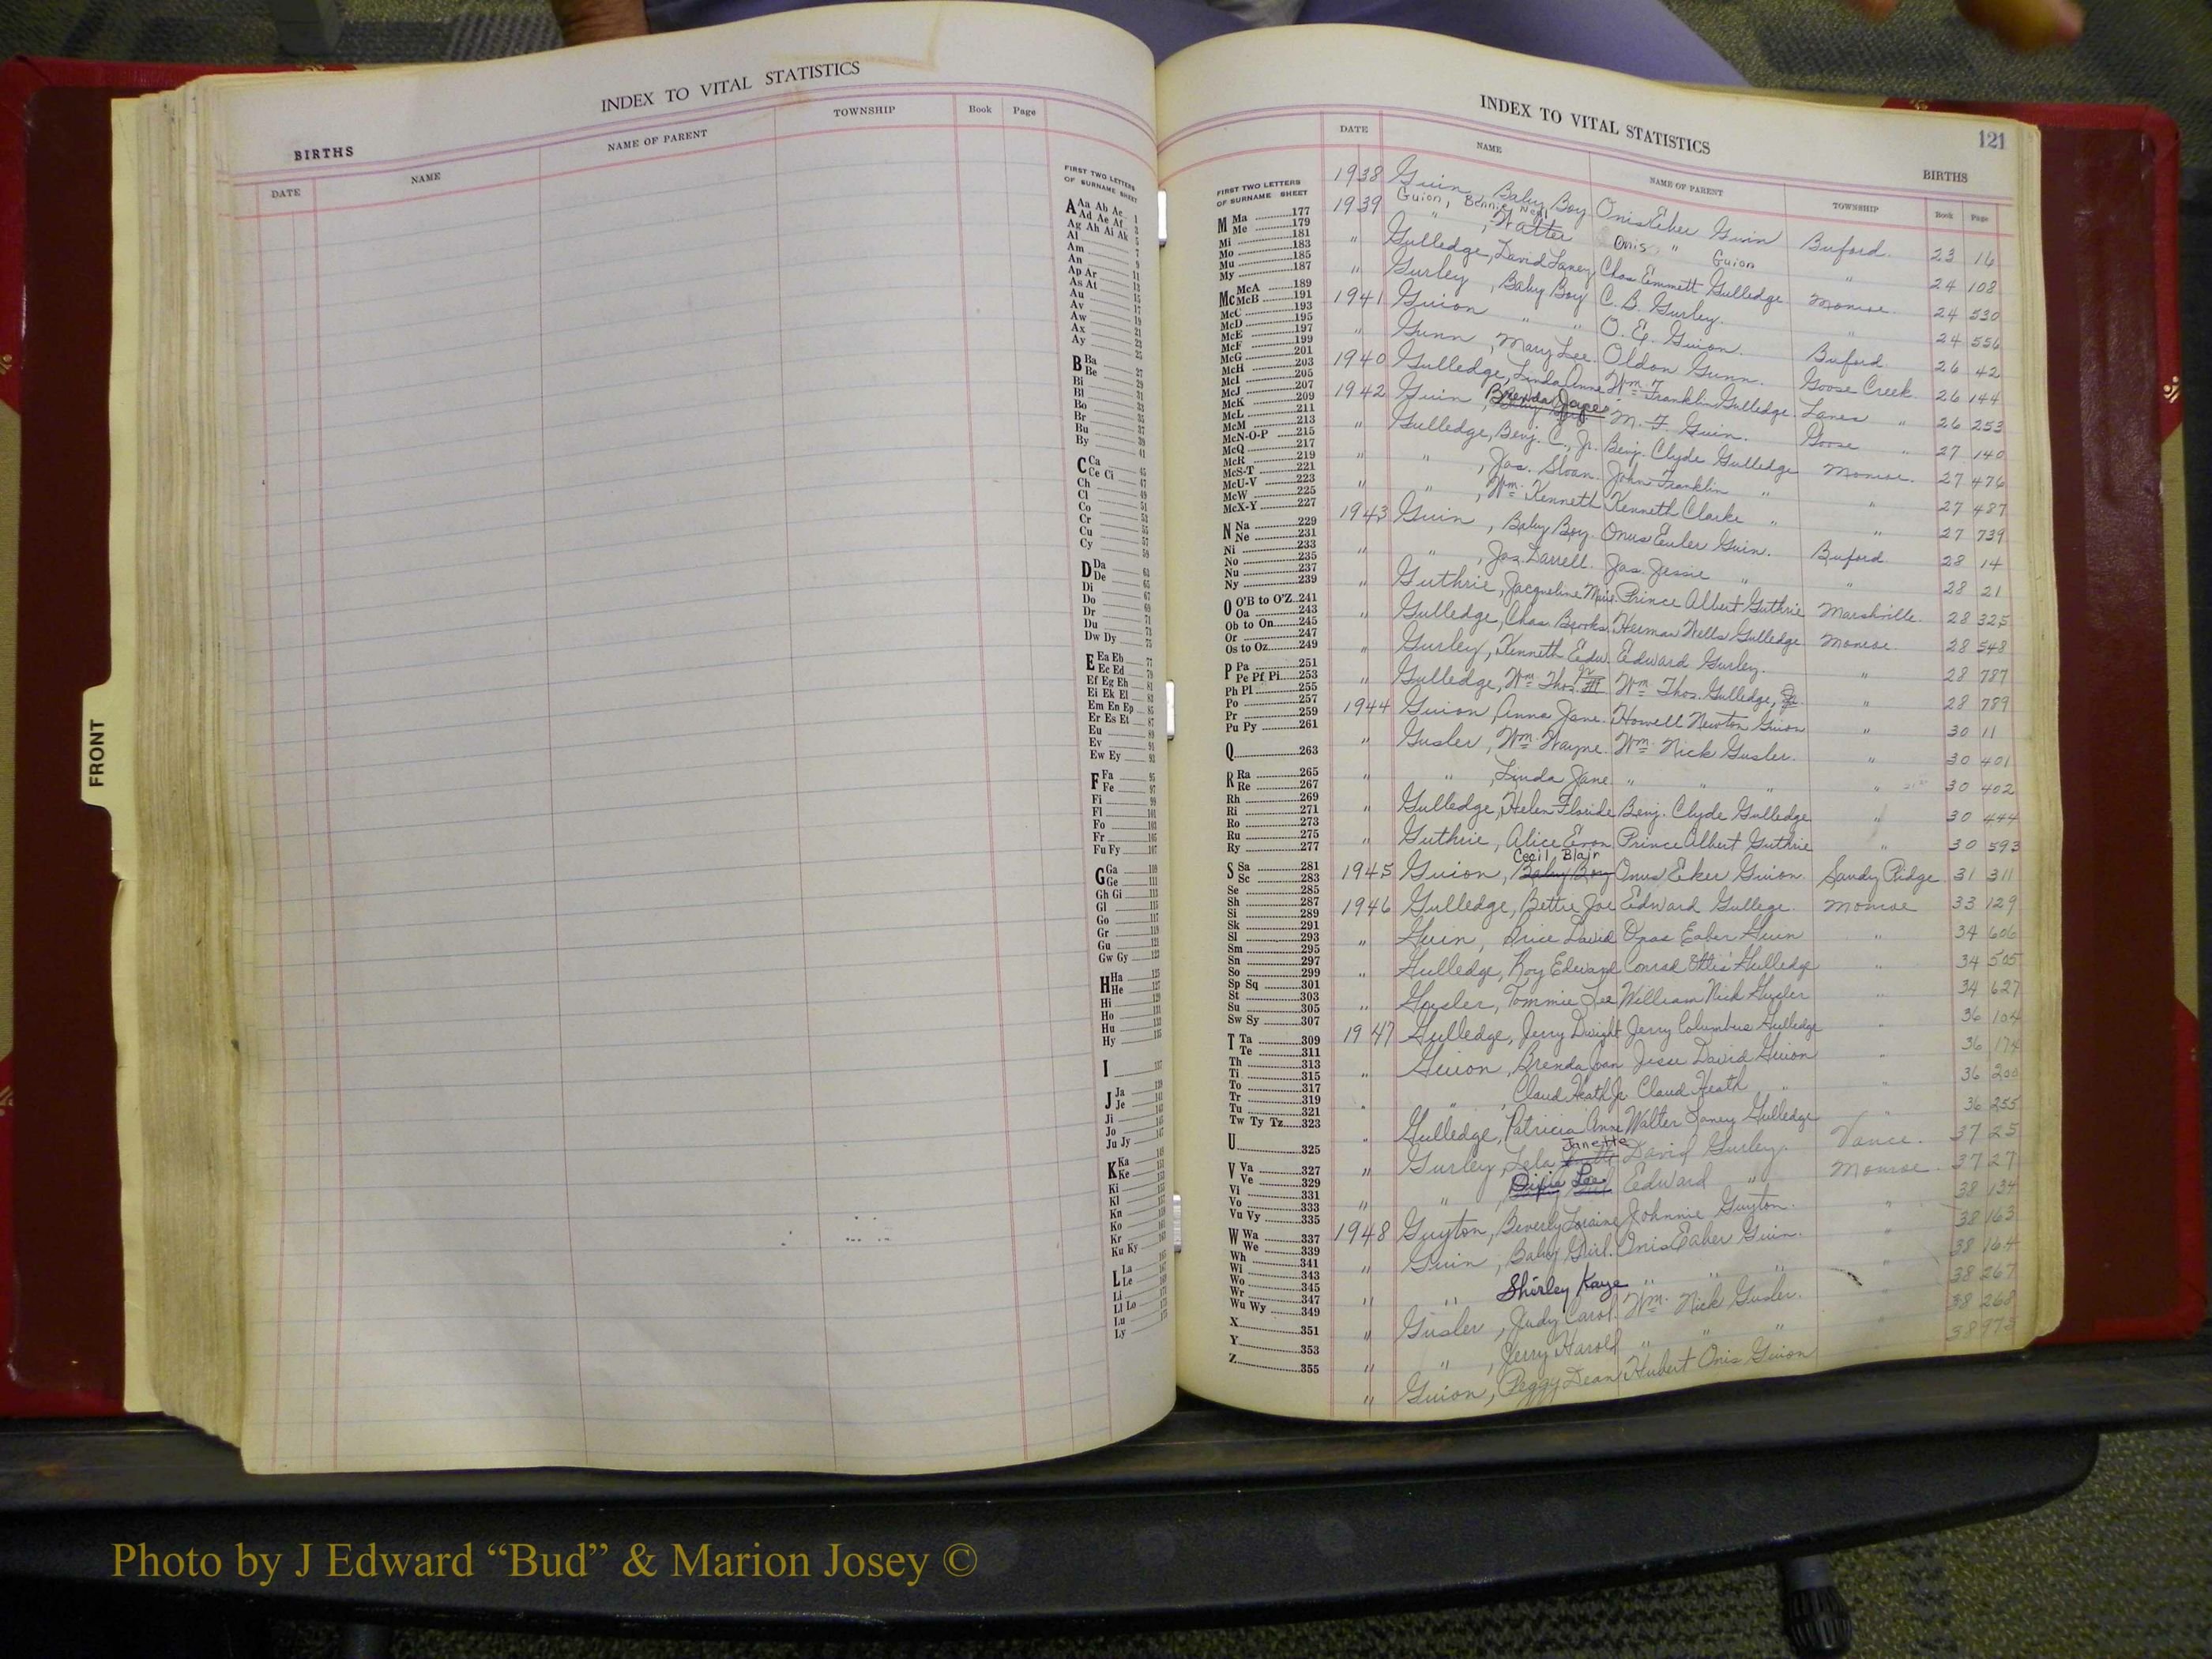 INDEX TO VITAL STATISTICS
BIRTHS
DATE NAME NAME OF PARENT TOWNSHIP Book Page
FRONT
FIRST TWO LETTERS
OF SURNAME SHEET
A Aa Ab Ac 1
Ad Ae Af 3
Ag Ah Ai Ak 5
Al 7
Am 9
An 11
Ap Ar 13
As At
Au
Av
Aw
Ax
Ay
B Ba
Be
Bi
Bl
Bo
Br
Bu
By
C Ca
Ce Ci
Ch
Cl
Co
Cr
Cu
Cy
D Da
De
Di
Do
Dr
Du
Dw Dy
E Ea Eb
Ec Ed
Ef Eg Eh
Ei Ek El
Em En Ep
Er Es Et
Eu
Ev
Ew Ey
F Fa
Fe
Fi
Fl
Fo
Fr
Fu Fy
G Ga
Ge
Gh Gi
Gl
Go
Gr
Gu
Gw Gy
H Ha
He
Hi
Ho
Hu
Hy
I
J Ja
Je
Ji
Jo
Ju Jy
K Ka
Ke
Ki
Kl
Kn
Ko
Kr
Ku Ky
L La
Le
Li
Ll Lo
Lu
Ly
INDEX TO VITAL STATISTICS
121
BIRTHS
FIRST TWO LETTERS
OF SURNAME SHEET
M Ma 177
Me 179
Mi 181
Mo 183
Mu 185
My 187
Mc McA 189
McB 191
McC 193
McD 195
McE 197
McF 199
McG 201
McH 203
McI 205
McJ 207
McK 209
McL 211
McM 213
McN-O-P 215
McQ 217
McR 219
McS-T 221
McU-V 223
McW 225
McX-Y 227
N Na 229
Ne 231
Ni 233
No 235
Nu 237
Ny 239
O O'B to O'Z 241
Oa 243
Ob to On 245
Or 247
Os to Oz 249
P Pa 251
Pe Pf Pi 253
Ph Pl 255
Po 257
Pr 259
Pu Py 261
Q 263
R Ra 265
Re 267
Rh 269
Ri 271
Ro 273
Ru 275
Ry 277
S Sa 281
Sc 283
Se 285
Sh 287
Si 289
Sk 291
Sl 293
Sm 295
Sn 297
So 299
Sp Sq 301
St 303
Su 305
Sw Sy 307
T Ta 309
Te 311
Th 313
Ti 315
To 317
Tr 319
Tu 321
Tw Ty Tz 323
U 325
V Va 327
Ve 329
Vi 331
Vo 333
Vu Vy 335
W Wa 337
We 339
Wh 341
Wi 343
Wo 345
Wr 347
Wu Wy 349
X 351
Y 353
Z 355
DATE NAME NAME OF PARENT TOWNSHIP Book Page
1938 Guin, Baby Boy Onis Eker Guin Buford 23 16
Guion, Bennie Neal
1939 " , Walter Onis " Guion " 24 108
" Gulledge, David Laney Chas Emmett Gulledge Monroe 24 530
" Gurley, Baby Boy C. B. Gurley. " 24 556
1941 Guion " " O. E. Guion. Buford 26 42
" Gunn, Mary Lee. Oldon Gunn. Goose Creek 26 144
1940 Gulledge, Linda Anne Wm. F. Franklin Gulledge Lanes " 26 253
1942 Guin, Brenda Jane M. F. Guin. Goose " 27 140
" Gulledge, Benj. C., Jr. Benj. Clyde Gulledge Monroe. 27 476
" " , Jas. Sloan. John Franklin " " 27 487
" " , Wm. Kenneth Kenneth Clarke " " 27 739
1943 Guin, Baby Boy. Onus Euler Guin. Buford 28 14
" " , Jas. Darrell. Jas. Jessie " " 28 21
" Guthrie, Jacqueline Marie Prince Albert Guthrie Marshville. 28 325
" Gulledge, Chas. Brooks, Herman Wells Gulledge Monroe 28 548
" Gurley, Kenneth Edw. Edward Gurley. " 28 787
" Gulledge, Wm. Thos. Jr. III Wm. Thos. Gulledge, Jr. " 28 789
1944 Guion, Anna Jane. Howell Newton Guion " 30 11
" Gusler, Wm. Wayne. Wm. Nick Gusler. " 30 401
" " , Linda Jane " " " " 30 402
" Gulledge, Helen Floride Benj. Clyde Gulledge " 30 444
" Guthrie, Alice Evon Prince Albert Guthrie " 30 593
Cecil Blair
1945 Guion, Baby Boy Onus Eker Guion Sandy Ridge 31 311
1946 Gulledge, Bettie Joe Edward Gullege. Monroe 33 129
" Guin, Brice David Guin " 34 606
" Gulledge, Roy Edward Conrad Ottis Gulledge " 34 505
" Gusler, Tommie Lee William Nick Gusler " 34 627
1947 Gulledge, Jerry Dwight Jerry Columbus Gulledge " 36 104
" Guion, Brenda Joan Jesse David Guion " 36 174
" " , Claud Heath Jr Claud Heath " " 36 200
" Gulledge, Patricia Anne Walter Laney Gulledge " 36 255
Janette
" Gurley, Lela David Gurley. Vance. 37 25
" " , Dixie Lee Edward " Monroe 37 27
1948 Guyton, Beverly Loraine Johnnie Guyton. " 38 134
" Guin, Baby Girl. Onis Eaber Guin. " 38 163
" " Shirley Kaye " " " " 38 164
" Gusler, Judy Carol. Wm. Nick Gusler. " 38 267
" " , Jerry Harold " " " " 38 268
" Guion, Peggy Dean Hubert Onis Guion 38 975
Photo by J Edward “Bud” & Marion Josey ©